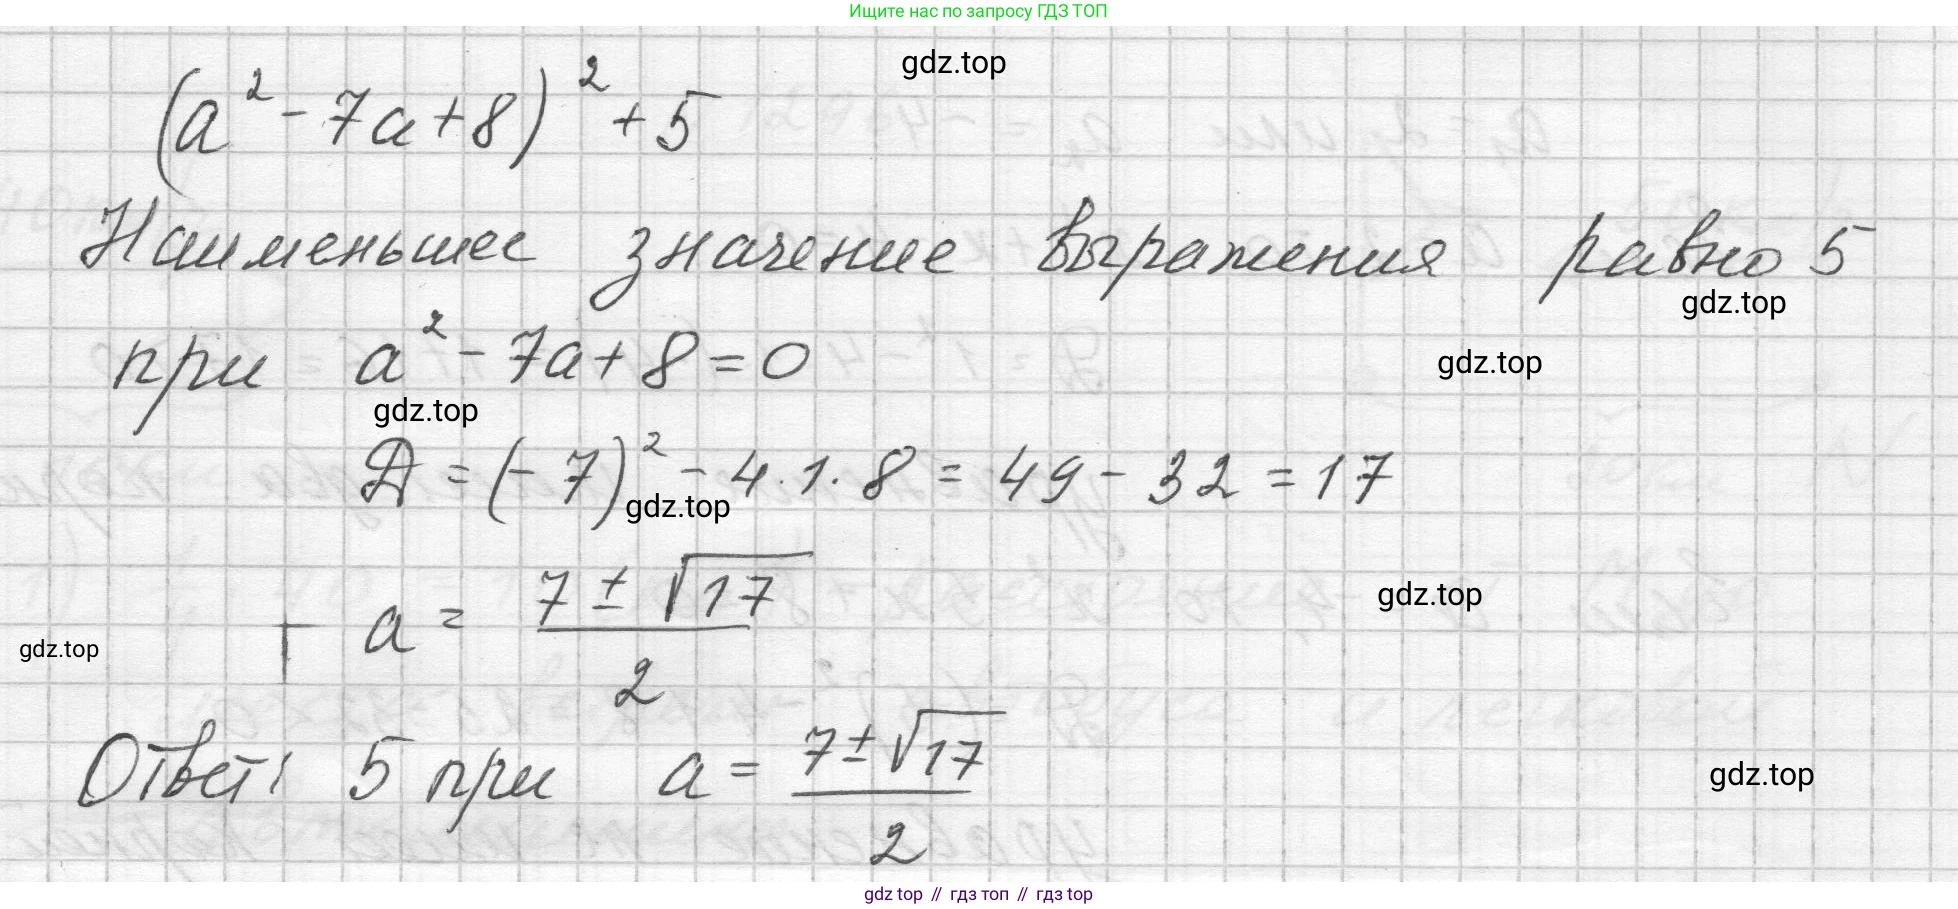 Ищите нас по запросу ГДЗ ТОП
gdz.top
(a² - 7a + 8)² + 5
Наименьшее значение выражения равно 5
gdz.top
при a² - 7a + 8 = 0
gdz.top
gdz.top
Д = (-7)² - 4·1·8 = 49 - 32 = 17
gdz.top
a = (7 ± √17)/2
gdz.top
gdz.top
Ответ: 5 при a = (7 ± √17)/2
gdz.top
gdz.top // гдз топ // гдз top